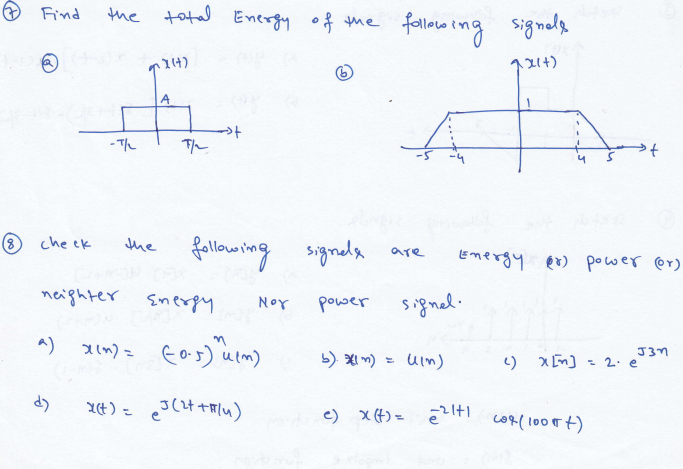 ⑦ Find the total Energy of the following signals
ⓐ x(t) A -T/2 T/2 t
ⓑ x(t) 1 -5 -4 4 5 t
⑧ check the following signals are Energy (or) power (or)
neighter Energy Nor power signal.
a) x(n) = (-0.5)ⁿ u(n) b) x(n) = u(n) c) x[n] = 2. e^J3n
d) x(t) = e^J(2t+π/4) e) x(t) = e^-2|t| cos(100πt)